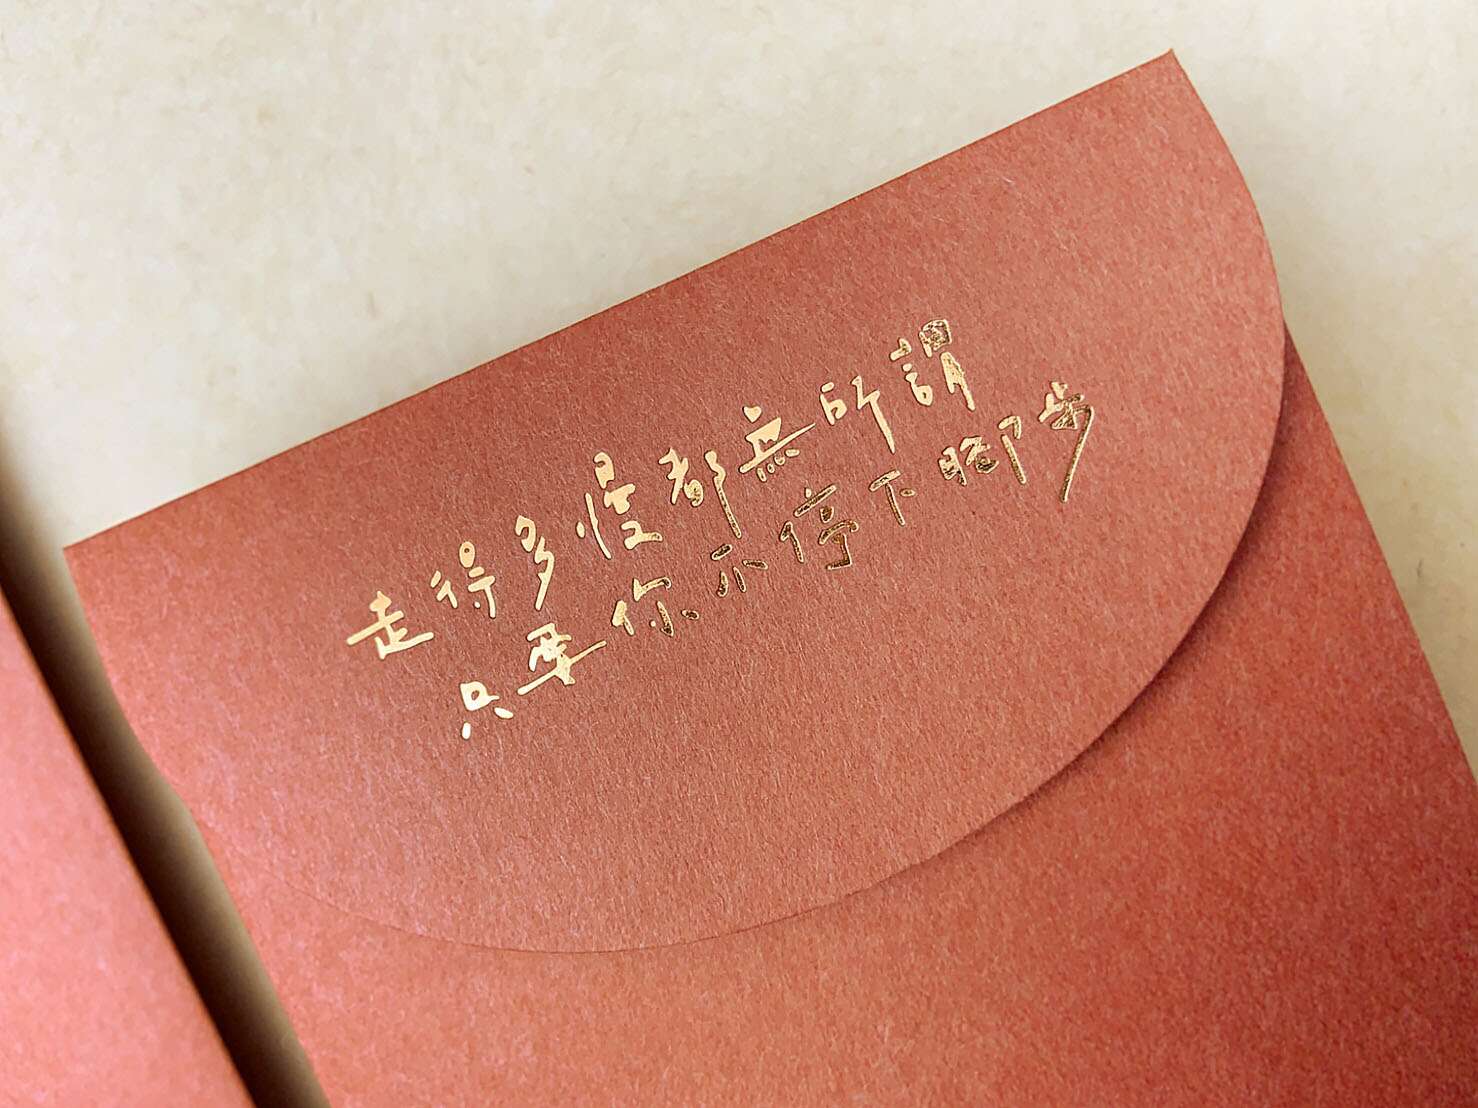 走得多慢都無所謂
只要你不停下腳步